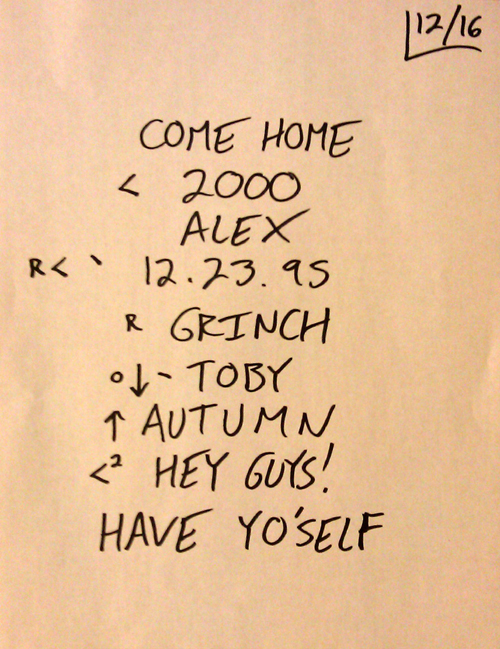 12/16
COME HOME
< 2000
ALEX
R< ` 12.23.95
R GRINCH
o↓~ TOBY
↑ AUTUMN
<² HEY GUYS!
HAVE YO'SELF